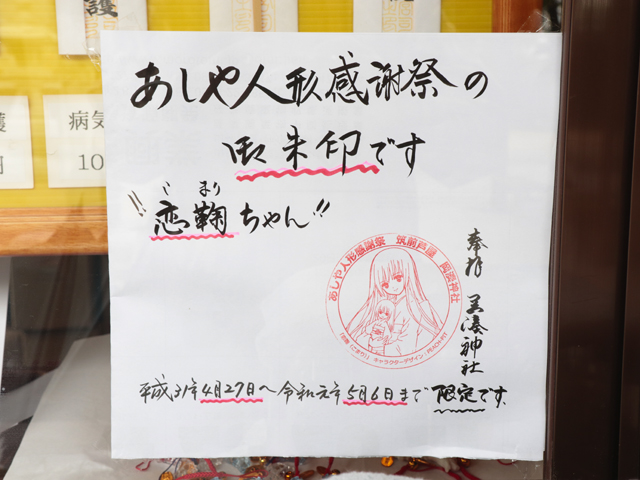 護
病気
10
あしや人形感謝祭の
御朱印です
こまり
"恋鞠ちゃん"
奉拝 岡湊神社
あしや人形感謝祭 筑前芦屋 岡湊神社
「恋鞠(こまり)」キャラクターデザイン:PEACH-PIT
平成31年4月27日~令和元年5月6日まで限定です。